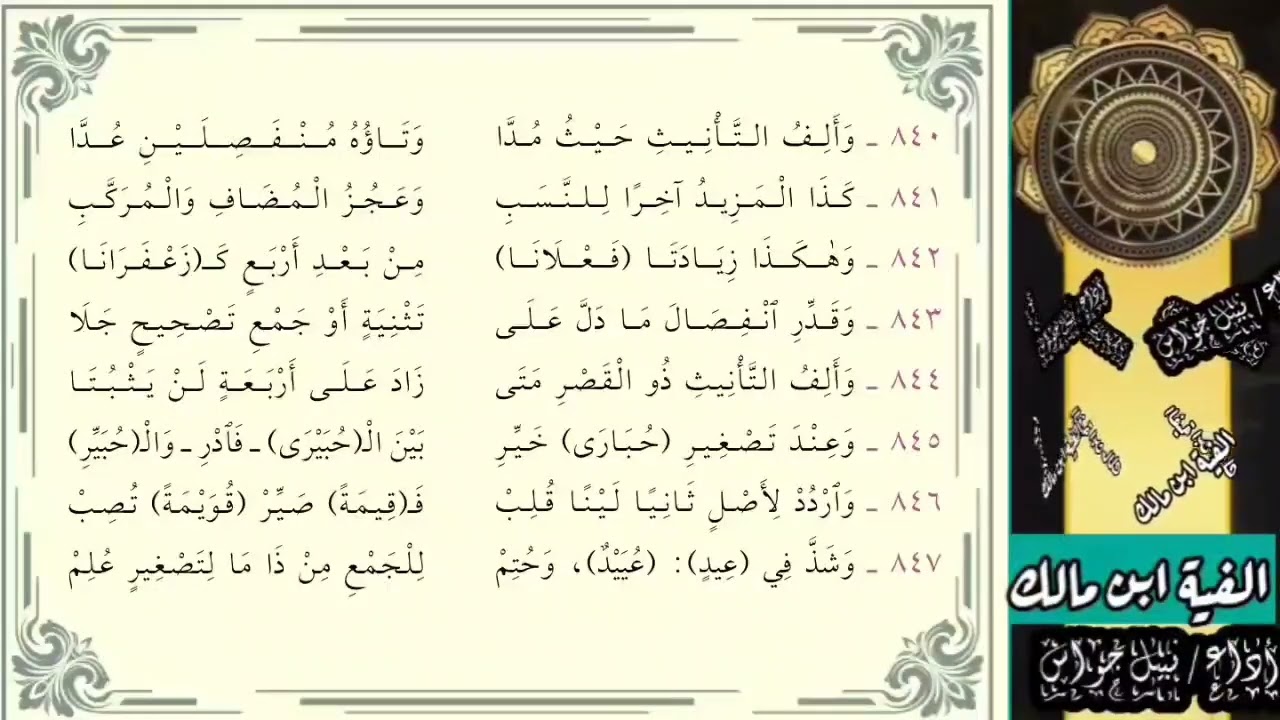 ٨٤٠ ـ وَأَلِفُ التَّأْنِيثِ حَيْثُ مُدَّا وَتَاؤُهُ مُنْفَصِلَيْنِ عُدَّا
٨٤١ ـ كَذَا الْمَزِيدُ آخِرًا لِلنَّسَبِ وَعَجُزُ الْمُضَافِ وَالْمُرَكَّبِ
٨٤٢ ـ وَهٰكَذَا زِيَادَتَا (فَعْلَانَا) مِنْ بَعْدِ أَرْبَعٍ كَـ(زَعْفَرَانَا)
٨٤٣ ـ وَقَدِّرِ ٱنْفِصَالَ مَا دَلَّ عَلَى تَثْنِيَةٍ أَوْ جَمْعِ تَصْحِيحٍ جَلَا
٨٤٤ ـ وَأَلِفُ التَّأْنِيثِ ذُو الْقَصْرِ مَتَى زَادَ عَلَى أَرْبَعَةٍ لَنْ يَثْبُتَا
٨٤٥ ـ وَعِنْدَ تَصْغِيرِ (حُبَارَى) خَيِّرِ بَيْنَ الْـ(حُبَيْرَى) ـ فَٱدْرِ ـ وَالْـ(حُبَيِّرِ)
٨٤٦ ـ وَٱرْدُدْ لِأَصْلٍ ثَانِيًا لَيْنًا قُلِبْ فَـ(قِيمَةً) صَيِّرْ (قُوَيْمَةً) تُصِبْ
٨٤٧ ـ وَشَذَّ فِي (عِيدٍ): (عُيَيْدٌ)، وَحُتِمْ لِلْجَمْعِ مِنْ ذَا مَا لِتَصْغِيرٍ عُلِمْ
الفية ابن مالك
الفية ابن مالك
أداء / نبيل جواس